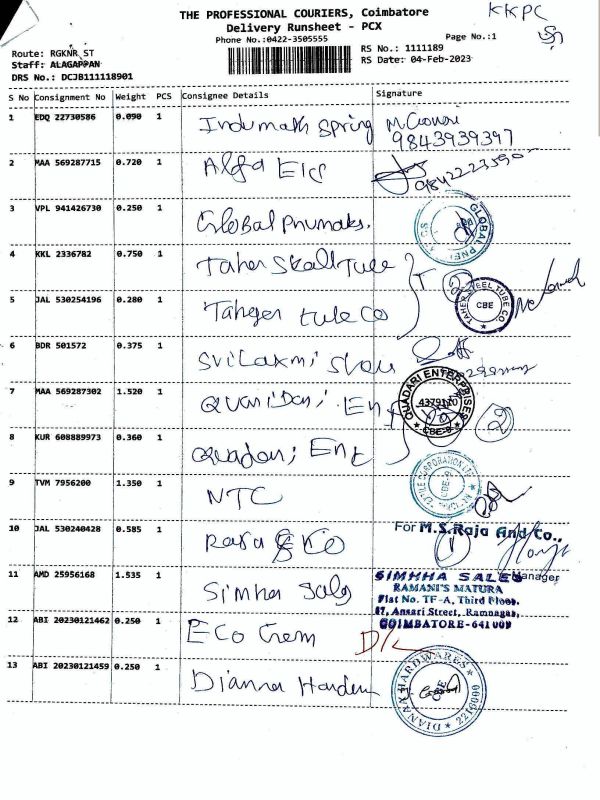 THE PROFESSIONAL COURIERS, Coimbatore
KKPC
Delivery Runsheet - PCX
Phone No.:0422-3505555
Page No.:1
Route: RGKNR ST
RS No.: 1111189
Staff: ALAGAPPAN
RS Date: 04-Feb-2023
DRS No.: DCJB111118901
S No Consignment No Weight PCS Consignee Details Signature
1 EDQ 22730586 0.090 1 Indumath Spring M Gowri
9843939397
2 MAA 569287715 0.720 1 Alfa Eng
3 VPL 941426730 0.250 1 Global Pnumaks.
GLOBAL
4 KKL 2336782 0.750 1 Taher Stall Tube
5 JAL 530254196 0.280 1 Taheger tule Co
TAHER STEEL TUBE CO
CBE
6 BDR 501572 0.375 1 Sri Laxmi
7 MAA 569287302 1.520 1 Quaridari; Ent
QUADARI ENTERPRISES
4379110
CBE-9
8 KUR 608889973 0.360 1 Quadari; Ent 2
9 TVM 7956200 1.350 1 NTC
10 JAL 530240428 0.585 1 Raja & Co
For M.S.Raja And Co.,
1
Manager
11 AMD 25956168 1.535 1 Simha Sals
SIMHHA SALES
RAMANI'S MATURA
Flat No. TF-A, Third Floor.
87, Ansari Street, Ramnagar,
COIMBATORE-641 009
12 ABI 20230121462 0.250 1 Eco Chem D/L
13 ABI 20230121459 0.250 1 Dianna Hardwe
DIANNA HARDWARES